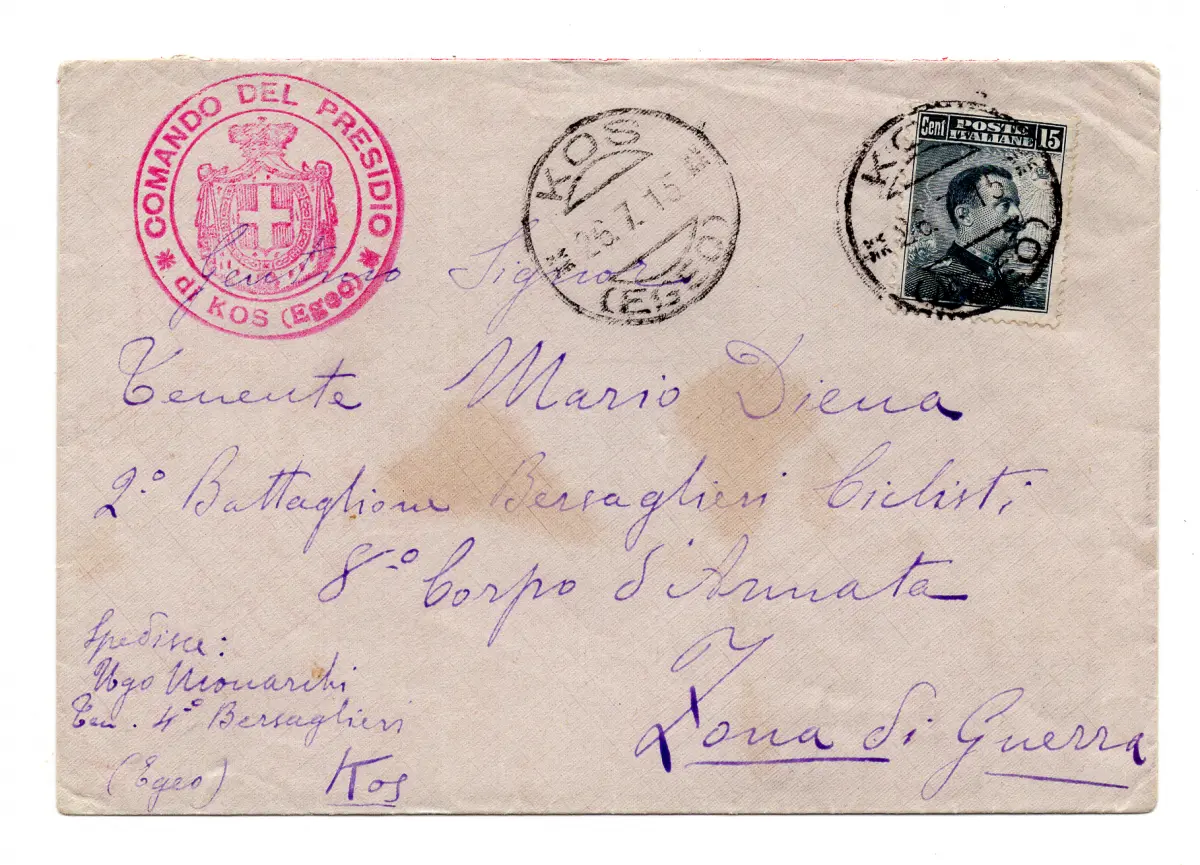 * COMANDO DEL PRESIDIO *
di KOS (Egeo)
KOS
26.7.15
(EGEO)
Cent POSTE ITALIANE 15
KOS
26.7.15
Signore
Tenente Mario Diena
2º Battaglione Bersaglieri Ciclisti
8º Corpo d'Armata
Zona di Guerra
Spedisce:
Ugo Monarchi
Ten. 4º Bersaglieri
(Egeo) Kos